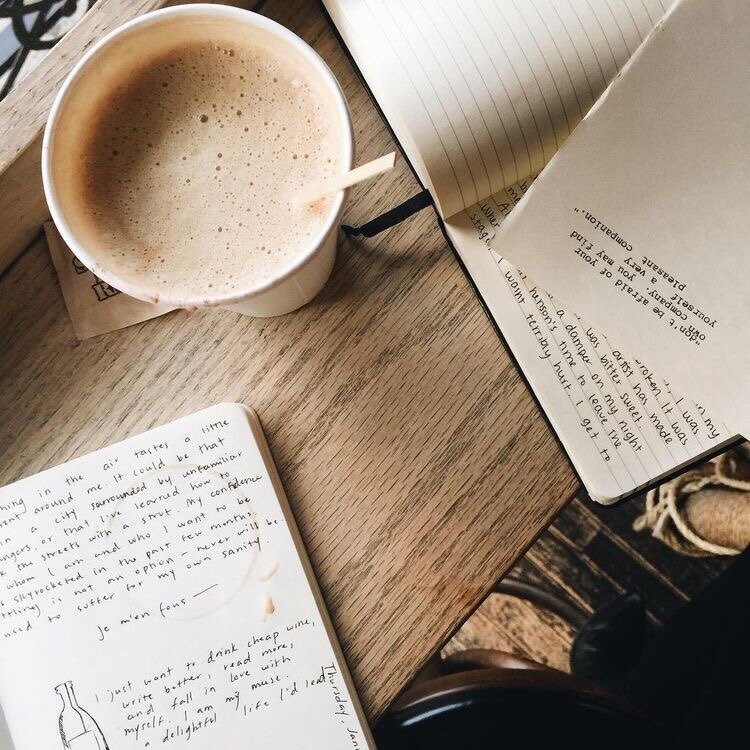 hing in the air tastes a little
rent around me. It could be that
in a city surrounded by unfamiliar
ngers, or that I've learned how to
k the streets with a strut. My confidence
whom I am and who I want to be
s skyrocketed in the past few months
ttling is not an option - never will be.
need to suffer for my own sanity
Je m'en fous —
I just want to drink cheap wine,
write better, read more,
and fall in love with
myself. I am my muse.
a delightful life I'd lead
Thursday, Jan
"don't be afraid of your
own company. you may find
yourself a very
pleasant companion."
in my
I was
roken it was
artist has made
was bitter sweet
a damper on my night
time to leave the
wasn't terribly hurt. I get to